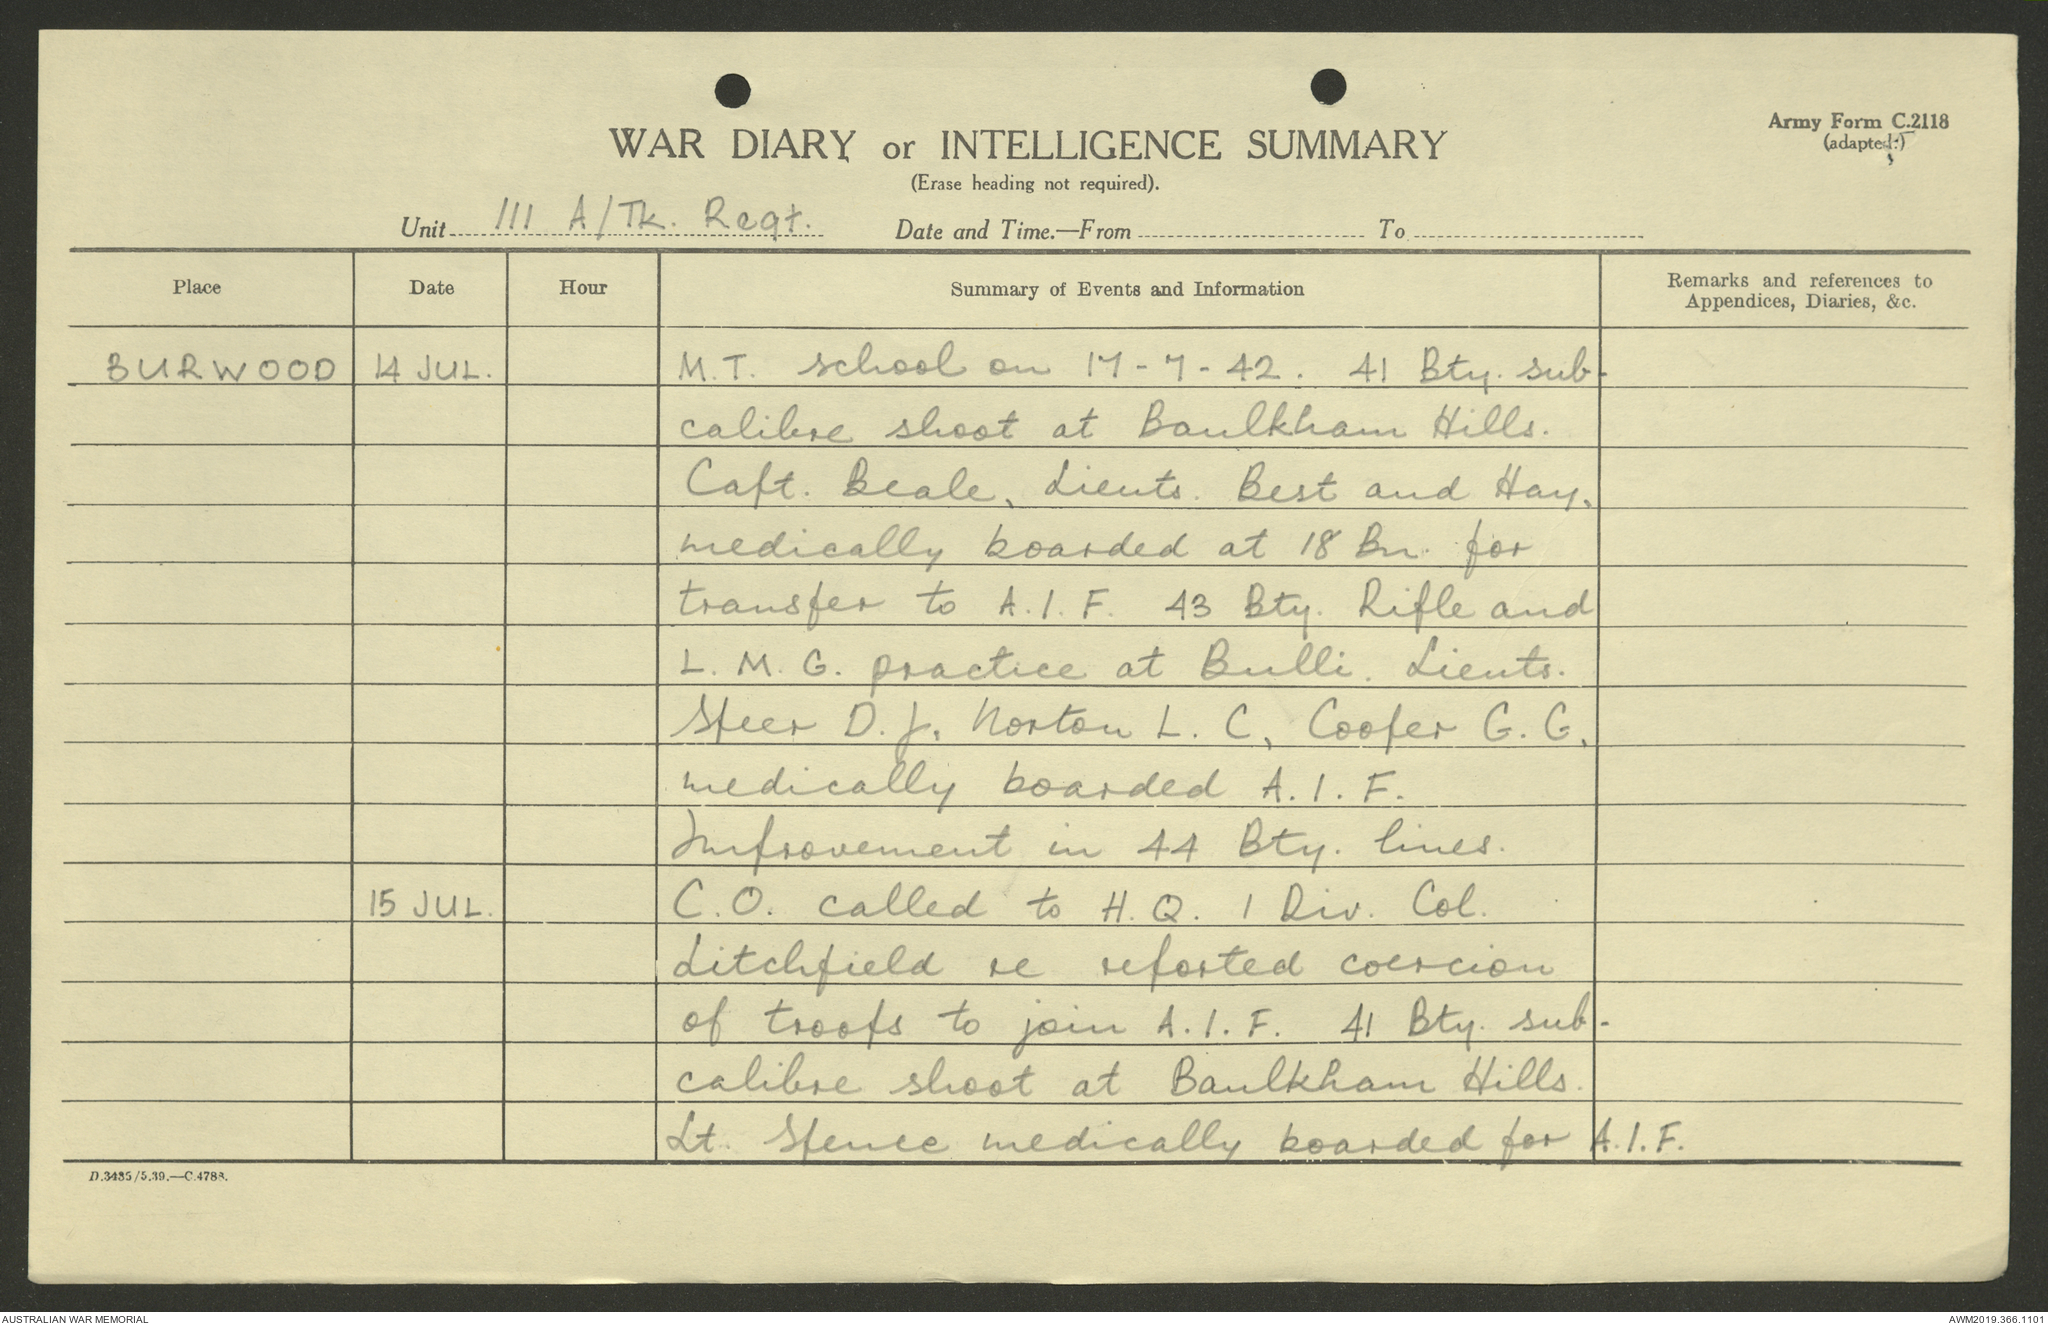 WAR DIARY or INTELLIGENCE SUMMARY
Army Form C.2118
(adapted)
(Erase heading not required).
Unit 111 A/Tk. Regt. Date and Time.—From To
Place Date Hour Summary of Events and Information Remarks and references to
Appendices, Diaries, &c.
BURWOOD 14 JUL. M.T. school on 17-7-42. 41 Bty. sub-
calibre shoot at Baulkham Hills.
Capt. Beale, Lieuts. Best and Hay,
medically boarded at 18 Bn. for
transfer to A.I.F. 43 Bty. Rifle and
L.M.G. practice at Bulli. Lieuts.
Speer D.J, Norton L.C, Cooper G.G,
medically boarded A.I.F.
Improvement in 44 Bty. lines.
15 JUL. C.O. called to H.Q. 1 Div. Col.
Litchfield re reported coercion
of troops to join A.I.F. 41 Bty. sub-
calibre shoot at Baulkham Hills.
Lt. Spence medically boarded for A.I.F.
D.3435/5.39.—C.4788.
AUSTRALIAN WAR MEMORIAL AWM2019.366.1101